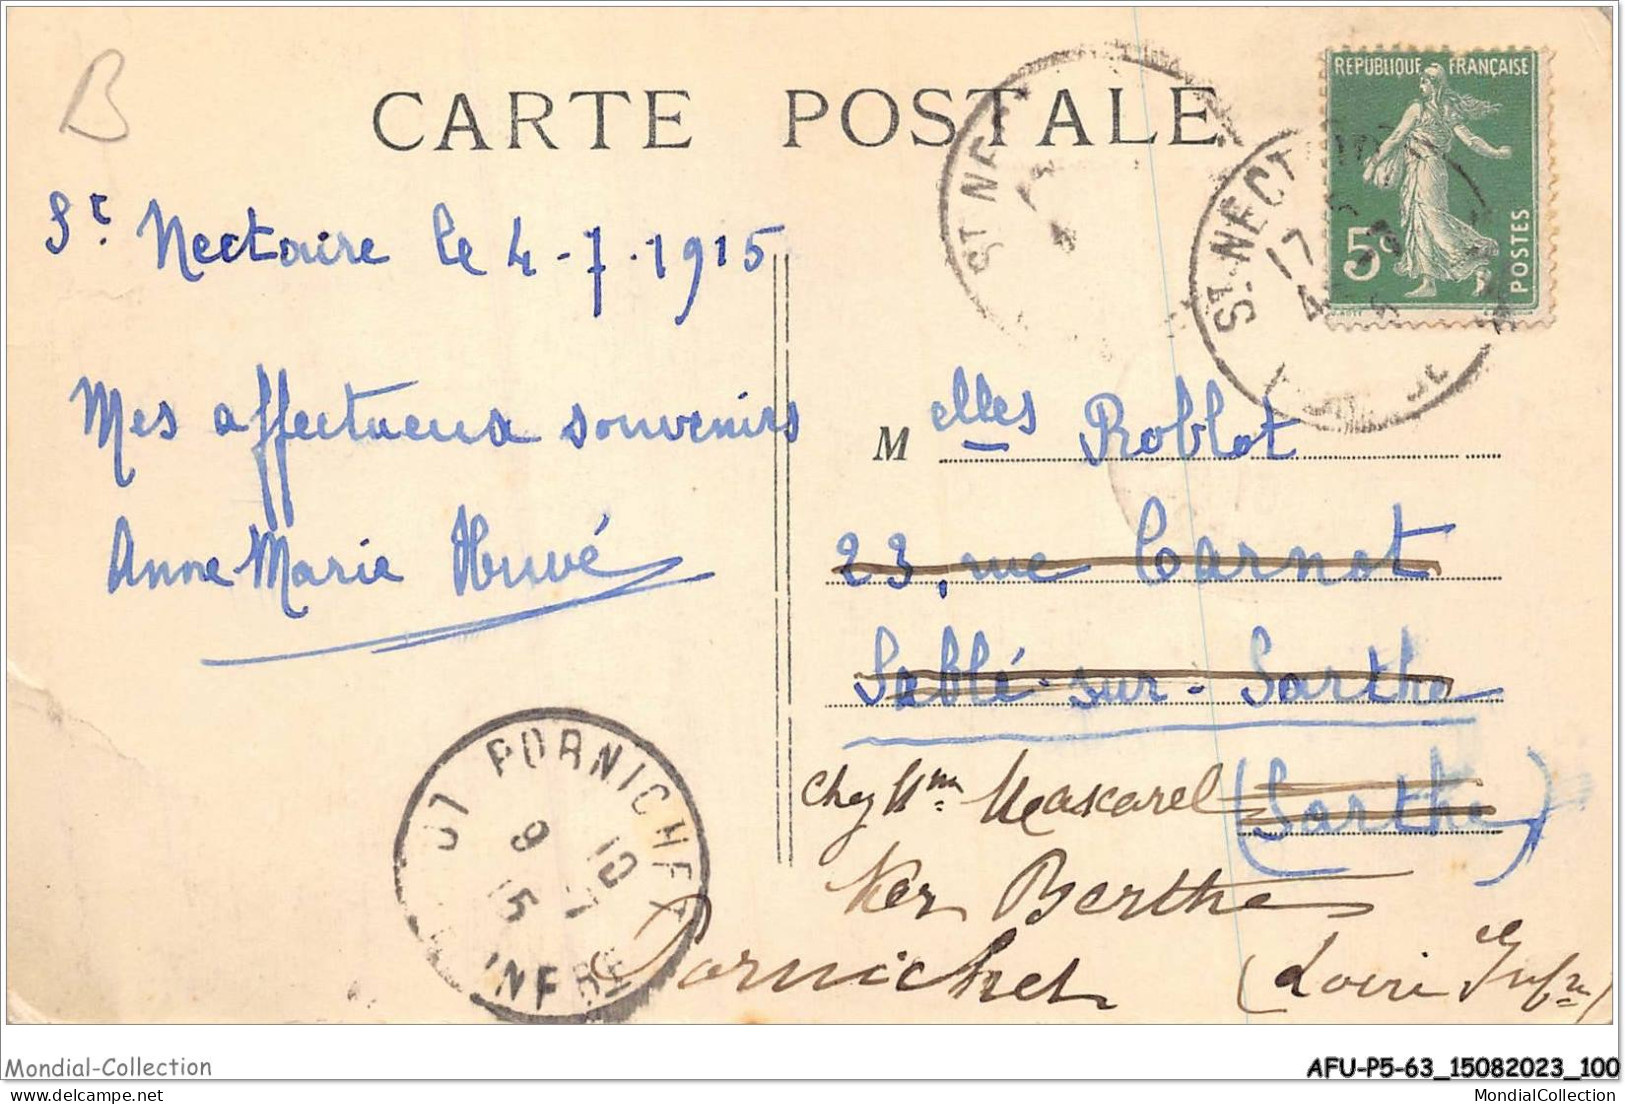 B
CARTE POSTALE
REPUBLIQUE FRANÇAISE
5c
POSTES
ST NE
ST NECT
17
4
St Nectaire le 4-7-1915
Mes affectueux souvenirs
Anne-Marie Huvé
Melles Roblot
23, rue Carnot
Sablé-sur-Sarthe
(Sarthe)
chez Mme Mascarel
Ker Berthe
Pornichet (Loire Infre)
PORNICHET
9 10
15 7
INFRE
Mondial-Collection
AFU-P5-63_15082023_100
MondialCollection
delcampe.net